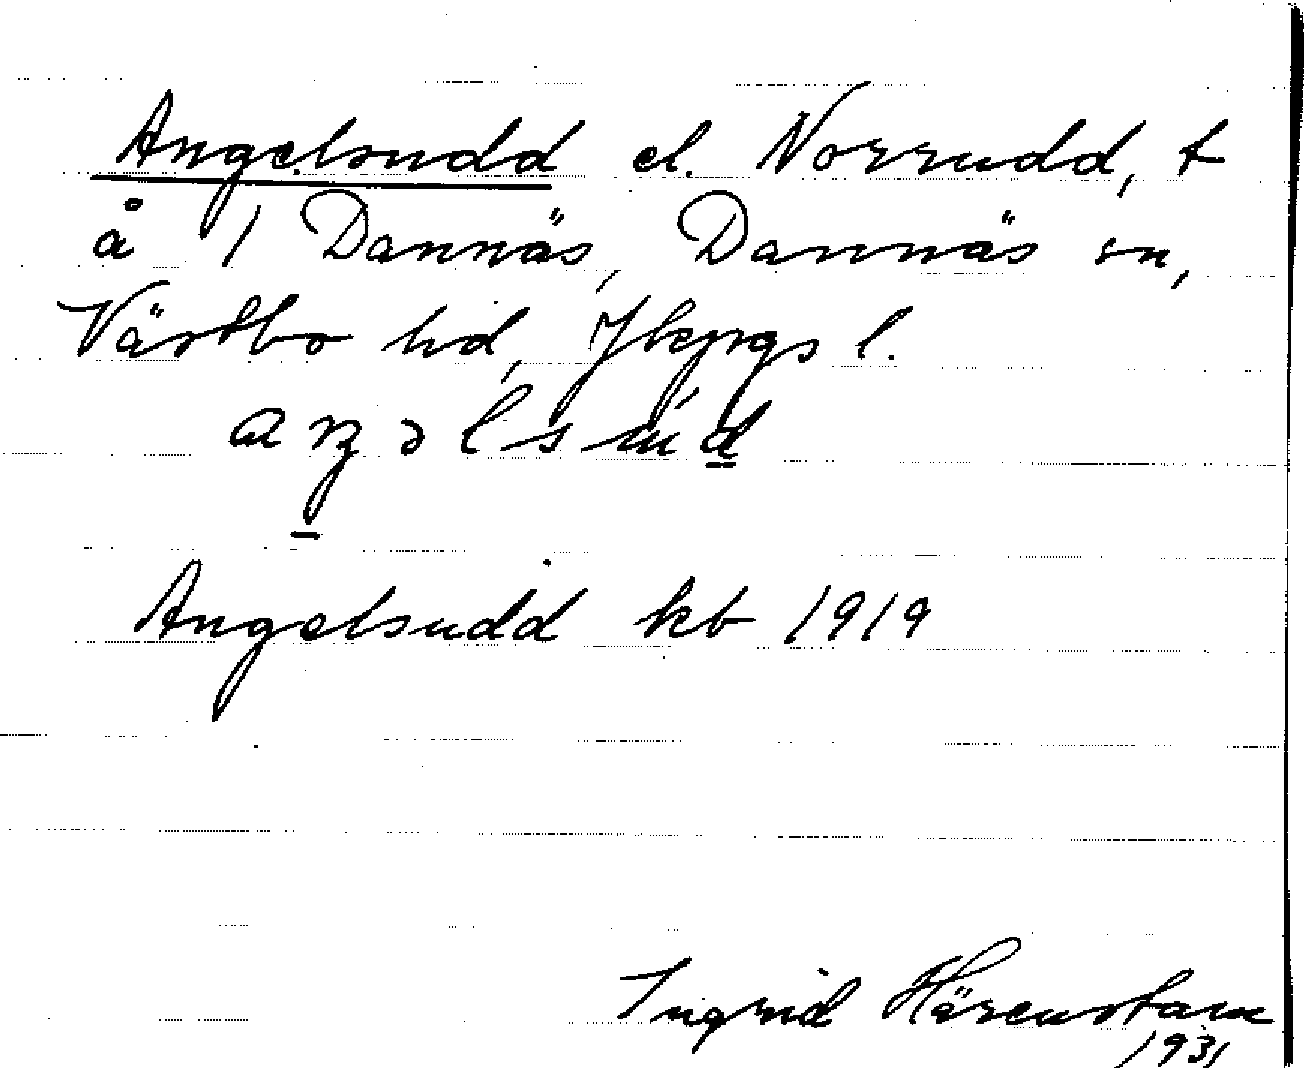 Angelsudd el. Norrudd, t
å 1 Dannäs, Dannäs sn,
Västbo hd, Jkpgs l.
aŋəlsud
Angelsudd kb 1919
Ingrid Härenstam
1931